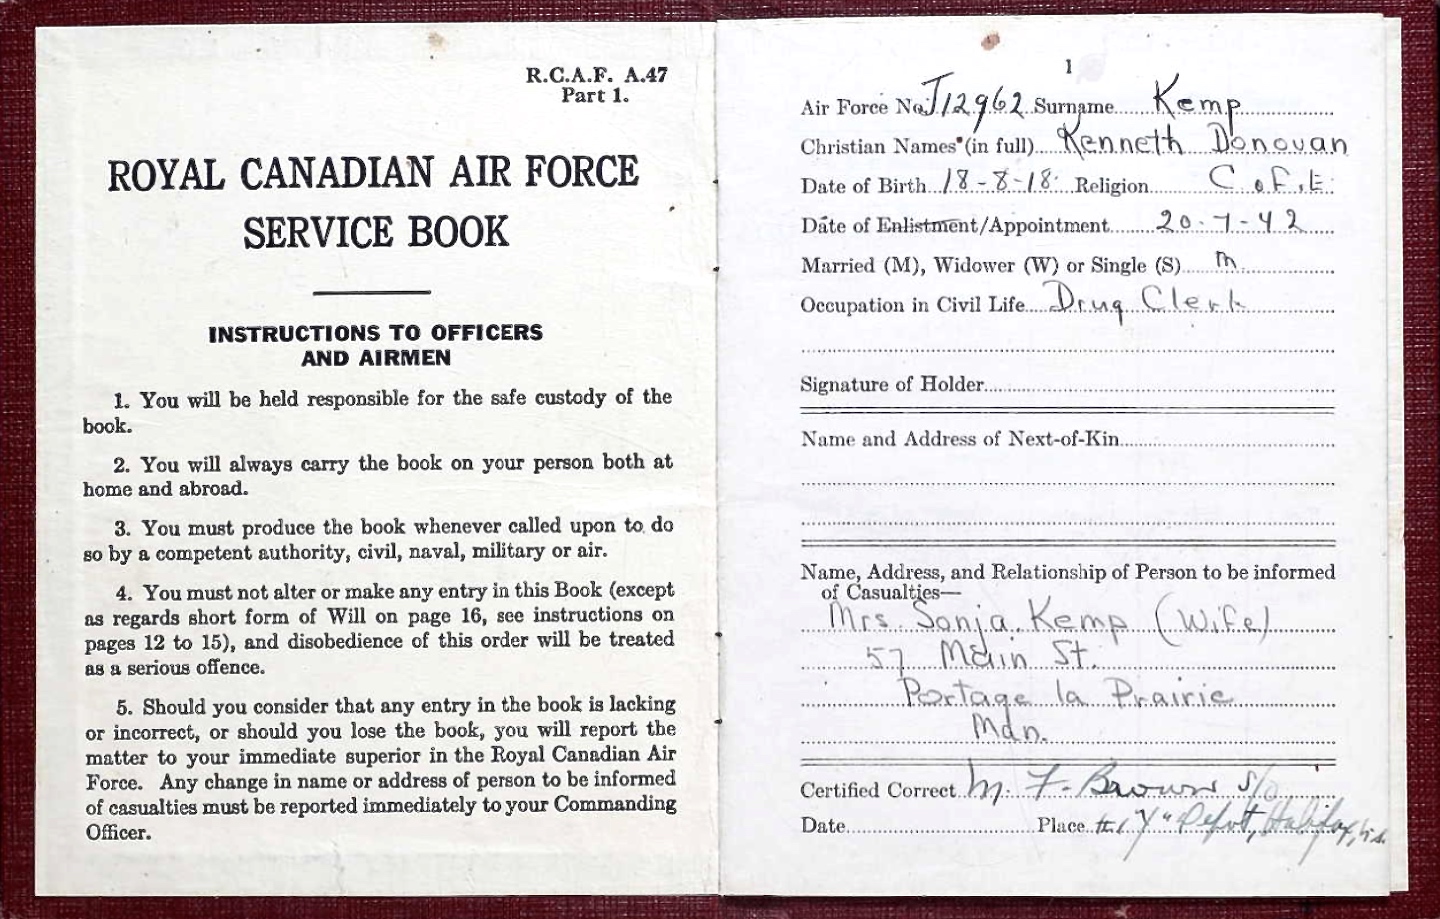 R.C.A.F. A.47
Part 1.
ROYAL CANADIAN AIR FORCE
SERVICE BOOK
INSTRUCTIONS TO OFFICERS
AND AIRMEN
1. You will be held responsible for the safe custody of the
book.
2. You will always carry the book on your person both at
home and abroad.
3. You must produce the book whenever called upon to do
so by a competent authority, civil, naval, military or air.
4. You must not alter or make any entry in this Book (except
as regards short form of Will on page 16, see instructions on
pages 12 to 15), and disobedience of this order will be treated
as a serious offence.
5. Should you consider that any entry in the book is lacking
or incorrect, or should you lose the book, you will report the
matter to your immediate superior in the Royal Canadian Air
Force. Any change in name or address of person to be informed
of casualties must be reported immediately to your Commanding
Officer.
1
Air Force No. J12962 Surname Kemp
Christian Names (in full) Kenneth Donovan
Date of Birth 18-8-18 Religion C of E.
Date of Enlistment/Appointment 20-7-42
Married (M), Widower (W) or Single (S) M
Occupation in Civil Life Drug Clerk
Signature of Holder
Name and Address of Next-of-Kin
Name, Address, and Relationship of Person to be informed
of Casualties—
Mrs. Sonja Kemp (Wife)
57 Main St.
Portage la Prairie
Man.
Certified Correct M. F. Brown S/O
Date Place #1 "Y" Depot, Halifax, N.S.